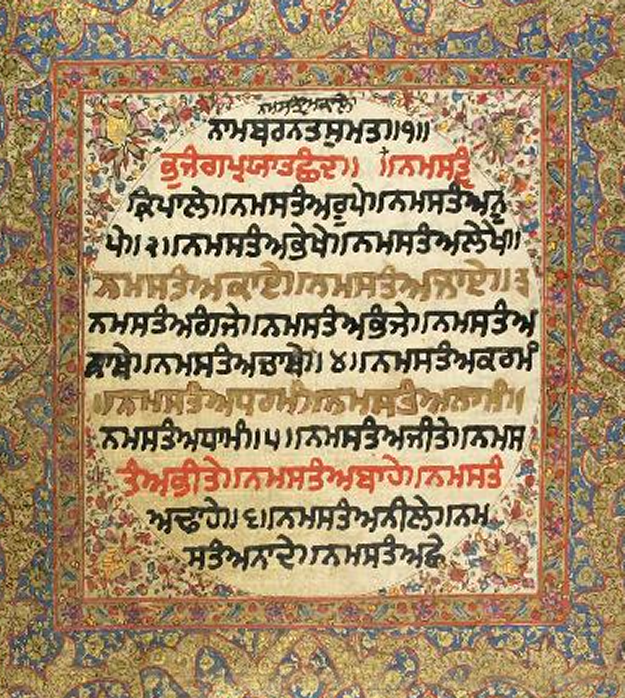 ਨਮਸਤ੍ਵੰਅਕਾਲੇ
ਨਾਮਬਰਨਤਸੁਮਤ॥੧॥
ਭੁਜੰਗਪ੍ਰਯਾਤਛੰਦ॥ ॥ਨਮਸਤ੍ਵੰ
ਕ੍ਰਿਪਾਲੇ॥ਨਮਸਤੰਅਰੂਪੇ॥ਨਮਸਤੰਅਨੂ
ਪੇ॥੨॥ਨਮਸਤੰਅਭੇਖੇ॥ਨਮਸਤੰਅਲੇਖੇ॥
ਨਮਸਤੰਅਕਾਏ॥ਨਮਸਤੰਅਜਾਏ॥੩
ਨਮਸਤੰਅਗੰਜੇ॥ਨਮਸਤੰਅਭੰਜੇ॥ਨਮਸਤੰਅ
ਨਾਮੇ॥ਨਮਸਤੰਅਠਾਮੇ॥੪॥ਨਮਸਤੰਅਕਰਮੰ
॥ਨਮਸਤੰਅਧਰਮੰ॥ਨਮਸਤੰਅਨਾਮੰ॥
ਨਮਸਤੰਅਧਾਮੰ॥੫॥ਨਮਸਤੰਅਜੀਤੇ॥ਨਮਸ
ਤੰਅਭੀਤੇ॥ਨਮਸਤੰਅਬਾਹੇ॥ਨਮਸਤੰ
ਅਢਾਹੇ॥੬॥ਨਮਸਤੰਅਨੀਲੇ॥ਨਮ
ਸਤੰਅਨਾਦੇ॥ਨਮਸਤੰਅਛੇ